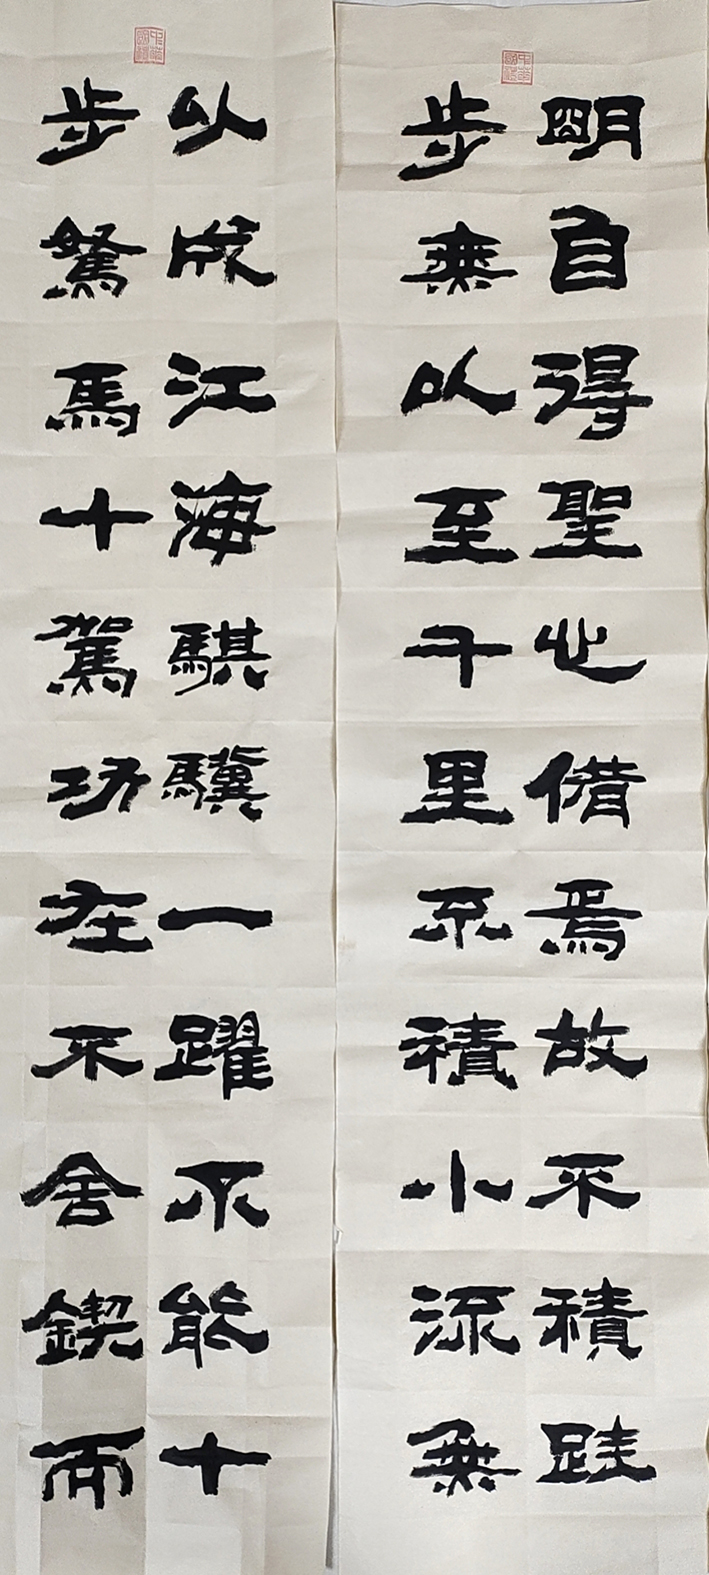 明自得聖心備焉故不積跬
步無以至千里不積小流無
以成江海騏驥一躍不能十
步駑馬十駕功在不舍鍥而